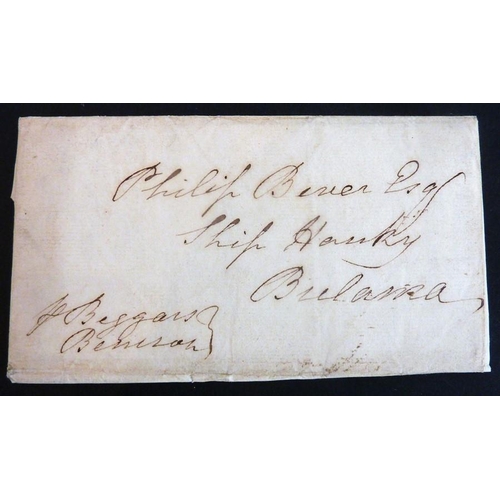 Philip Bever Esqr
Ship Hanky
Bulama
p Beggars
Benison